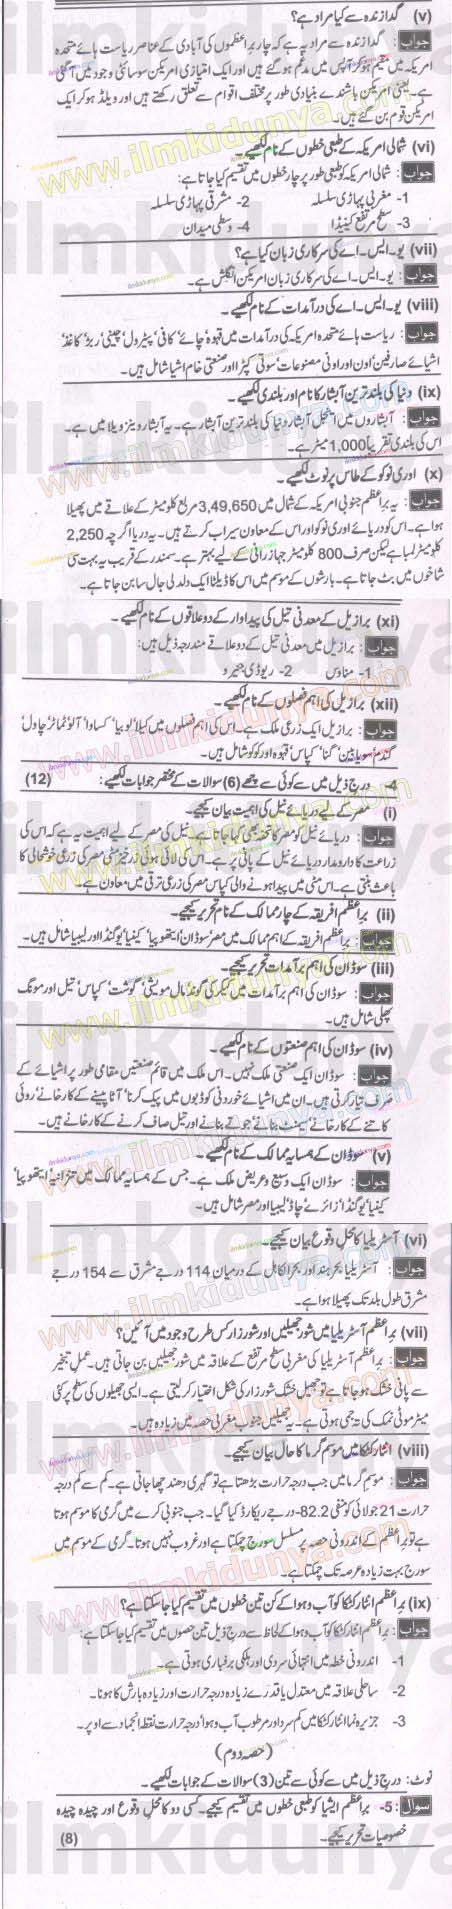 (v) گدازندہ سے کیا مراد ہے؟
جواب : گدازندہ سے مراد یہ ہے کہ چار براعظموں کی آبادی کے عناصر ریاست ہائے متحدہ
امریکہ میں مقیم ہو کر آپس میں مدغم ہو گئے ہیں اور ایک امتیازی امریکن سوسائٹی وجود میں آ گئی
ہے۔ یعنی امریکن باشندے بنیادی طور پر مختلف اقوام سے تعلق رکھتے ہیں اور ویلڈ ہو کر ایک
امریکن قوم بن گئے ہیں۔
(vi) شمالی امریکہ کے طبعی خطوں کے نام لکھیے۔
جواب : شمالی امریکہ کو طبعی طور پر چار خطوں میں تقسیم کیا جاتا ہے:
1- مغربی پہاڑی سلسلہ 2- مشرقی پہاڑی سلسلہ
3- سطح مرتفع کینیڈا 4- وسطی میدان
(vii) یو۔ایس۔اے کی سرکاری زبان کیا ہے؟
جواب : یو۔ایس۔اے کی سرکاری زبان امریکن انگلش ہے۔
(viii) یو۔ایس۔اے کی درآمدات کے نام لکھیے۔
جواب : ریاست ہائے متحدہ امریکہ کی درآمدات میں قہوہ' چائے' کافی' پیٹرول' چینی' ربڑ' کاغذ'
اشیائے صارفین' اون اور اونی مصنوعات' سوتی کپڑا اور صنعتی خام اشیا شامل ہیں۔
(ix) دنیا کی بلند ترین آبشار کا نام اور بلندی لکھیے۔
جواب : آبشاروں میں اینجل آبشار دنیا کی بلند ترین آبشار ہے۔ یہ آبشار وینزویلا میں ہے۔
اس کی بلندی تقریباً 1,000 میٹر ہے۔
(x) اوری نوکو کے طاس پر نوٹ لکھیے۔
جواب : یہ براعظم جنوبی امریکہ کے شمال میں 3,49,650 مربع کلومیٹر کے علاقے میں پھیلا
ہوا ہے۔ اس کو دریائے اوری نوکو اور اس کے معاون سیراب کرتے ہیں۔ یہ دریا اگرچہ 2,250
کلومیٹر لمبا ہے لیکن صرف 800 کلومیٹر جہازرانی کے لیے بہتر ہے۔ سمندر کے قریب یہ بہت سی
شاخوں میں بٹ جاتا ہے۔ بارشوں کے موسم میں اس کا ڈیلٹا ایک دلدلی جال سا بن جاتا ہے۔
(xi) برازیل کے معدنی تیل کی پیداوار کے دو علاقوں کے نام لکھیے۔
جواب : برازیل میں معدنی تیل کے دو علاقے مندرجہ ذیل ہیں:
1- مناوس 2- ریوڈی جنیرو
(xii) برازیل کی اہم فصلوں کے نام لکھیے۔
جواب : برازیل ایک زرعی ملک ہے۔ اس کی اہم فصلوں میں کیلا' لوبیا' کساوا' آلو' ٹماٹر' چاول'
گندم' سویابین' گنا' کپاس' قہوہ اور کوکو شامل ہیں۔
4- درج ذیل میں سے کوئی سے چھے (6) سوالات کے مختصر جوابات لکھیے: (12)
(i) مصر کے لیے دریائے نیل کی اہمیت بیان کیجیے۔
جواب : دریائے نیل کو مصر کا تحفہ بھی کہا جاتا ہے۔ نیل کی مصر کے لیے اہمیت یہ ہے کہ اس کی
زراعت کا دارومدار دریائے نیل کے پانی پر ہے۔ اس کی لائی ہوئی زرخیز مٹی مصر کی زرعی خوشحالی کا
باعث بنتی ہے۔ اس مٹی میں پیدا ہونے والی کپاس مصر کی زرعی ترقی میں معاون ہے۔
(ii) براعظم افریقہ کے چار ممالک کے نام تحریر کیجیے۔
جواب : براعظم افریقہ کے اہم ممالک میں مصر' سوڈان' ایتھوپیا' کینیا' یوگنڈا اور لیبیا شامل ہیں۔
(iii) سوڈان کی اہم برآمدات تحریر کیجیے۔
جواب : سوڈان کی اہم برآمدات میں کیکر کی گوند' مال مویشی' گوشت' کپاس' تیل اور مونگ
پھلی شامل ہیں۔
(iv) سوڈان کی اہم صنعتوں کے نام لکھیے۔
جواب : سوڈان ایک صنعتی ملک نہیں۔ اس ملک میں قائم صنعتیں مقامی طور پر اشیائے کے
صرف تیار کرتی ہیں۔ ان میں اشیائے خوردنی کو ڈبوں میں پیک کرنا' آٹا پیسنے کے کارخانے' روئی
کاتنے کے کارخانے' سیمنٹ بنانے' جوتے بنانے اور تیل صاف کرنے کے کارخانے ہیں۔
(v) سوڈان کے ہمسایہ ممالک کے نام لکھیے۔
جواب : سوڈان ایک وسیع و عریض ملک ہے۔ جس کے ہمسایہ ممالک میں تنزانیہ' ایتھوپیا'
کینیا' یوگنڈا' زائرے' چاڈ' لیبیا اور مصر شامل ہیں۔
(vi) آسٹریلیا کا محل وقوع بیان کیجیے۔
جواب : آسٹریلیا بحرہند اور بحرالکاہل کے درمیان 114 درجے مشرق سے 154 درجے
مشرق طول بلد تک پھیلا ہوا ہے۔
(vii) براعظم آسٹریلیا میں شور جھیلیں اور شورزار کس طرح وجود میں آئیں؟
جواب : براعظم آسٹریلیا کی مغربی سطح مرتفع کے علاقہ میں شور جھیلیں بن جاتی ہیں۔ عمل تبخیر
سے پانی خشک ہو جاتا ہے تو جھیل خشک شورزار کی شکل اختیار کر لیتی ہے۔ ایسی جھیلوں کی سطح پر کئی
میٹر موٹی نمک کی تہ جمی ہوتی ہے۔ یہ جھیلیں جنوب مغربی حصہ میں زیادہ ہیں۔
(viii) انٹارکٹکا میں موسم گرما کا حال بیان کیجیے۔
جواب : موسم گرما میں جب درجہ حرارت بڑھتا ہے تو گہری دھند چھا جاتی ہے۔ کم سے کم درجہ
حرارت 21 جولائی کو منفی 82.2- درجے ریکارڈ کیا گیا۔ جب جنوبی کرے میں گرمی کا موسم ہوتا
ہے تو براعظم کے اندرونی حصہ پر مسلسل سورج چمکتا ہے اور غروب نہیں ہوتا۔ گرمی کے موسم میں
سورج بہت زیادہ عرصہ تک چمکتا ہے۔
(ix) براعظم انٹارکٹکا کو آب و ہوا کے کن تین خطوں میں تقسیم کیا جا سکتا ہے؟
جواب : براعظم انٹارکٹکا کو آب و ہوا کے لحاظ سے درج ذیل تین حصوں میں تقسیم کیا جا سکتا ہے:
1- اندرونی خطہ میں انتہائی سردی اور ہلکی برفباری ہوتی ہے۔
2- ساحلی علاقہ میں معتدل یا قدرے زیادہ درجہ حرارت اور زیادہ بارش کا ہونا۔
3- جزیرہ نما انٹارکٹکا میں کم سرد اور مرطوب آب و ہوا' درجہ حرارت نقطہ انجماد سے اوپر۔
(حصہ دوم)
نوٹ: درج ذیل میں سے کوئی سے تین (3) سوالات کے جوابات لکھیے۔
سوال 5- : براعظم ایشیا کو طبعی خطوں میں تقسیم کیجیے۔ کسی دو کا محل وقوع اور چیدہ چیدہ
خصوصیات تحریر کیجیے۔ (8)
www.ilmkidunya.com